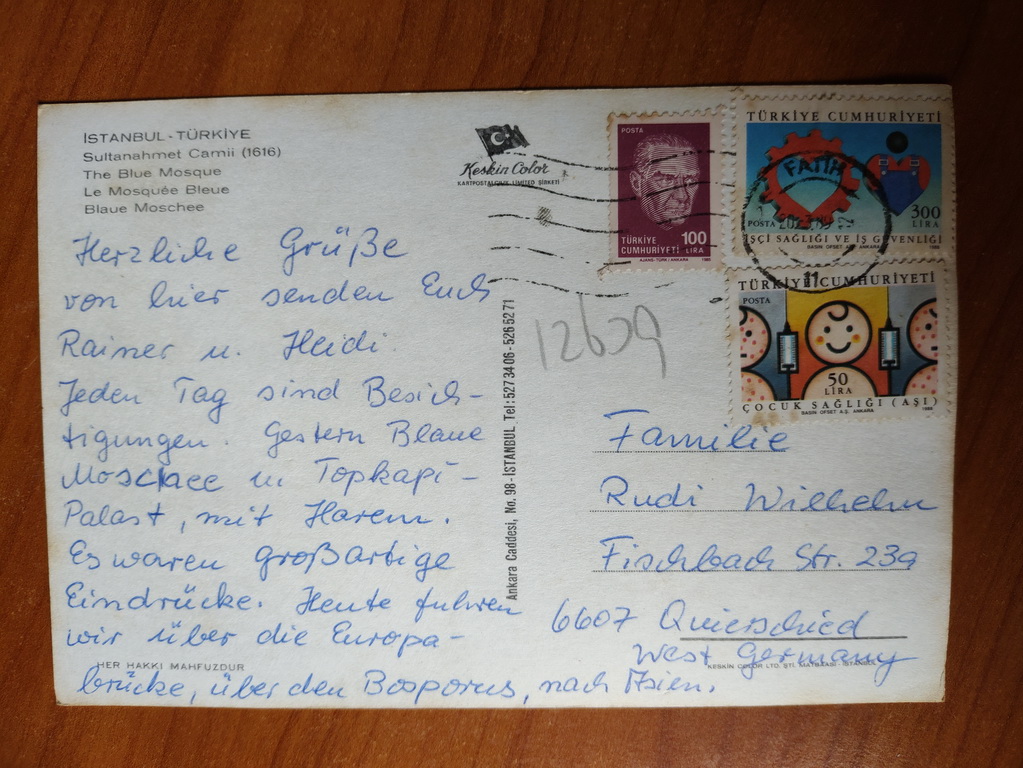 İSTANBUL - TÜRKİYE
Sultanahmet Camii (1616)
The Blue Mosque
Le Mosquée Bleue
Blaue Moschee
Keskin Color
KARTPOSTALCILIK LIMITED ŞİRKETİ
Herzliche Grüße
von hier senden Euch
Rainer u. Heidi.
Jeden Tag sind Besich-
tigungen. Gestern Blaue
Moschee u. Topkapi-
Palast, mit Harem.
Es waren großartige
Eindrücke. Heute fuhren
wir über die Europa-
brücke, über den Bosporus, nach Asien.
HER HAKKI MAHFUZDUR
Ankara Caddesi, No. 98 - İSTANBUL Tel: 527 34 06 - 526 52 71
POSTA
100
LİRA
TÜRKİYE
CUMHURİYETİ
AJANS-TÜRK / ANKARA
TÜRKİYE CUMHURİYETİ
FATİH
POSTA
300
LİRA
İŞÇİ SAĞLIĞI VE İŞ GÜVENLİĞİ
BASIN OFSET A.Ş. ANKARA
TÜRKİYE CUMHURİYETİ
POSTA
50
LİRA
ÇOCUK SAĞLIĞI (AŞI)
BASIN OFSET A.Ş. ANKARA
Familie
Rudi Wilhelm
Fischbach Str. 23a
6607 Quierschied
West Germany
KESKİN COLOR LTD. ŞTİ.